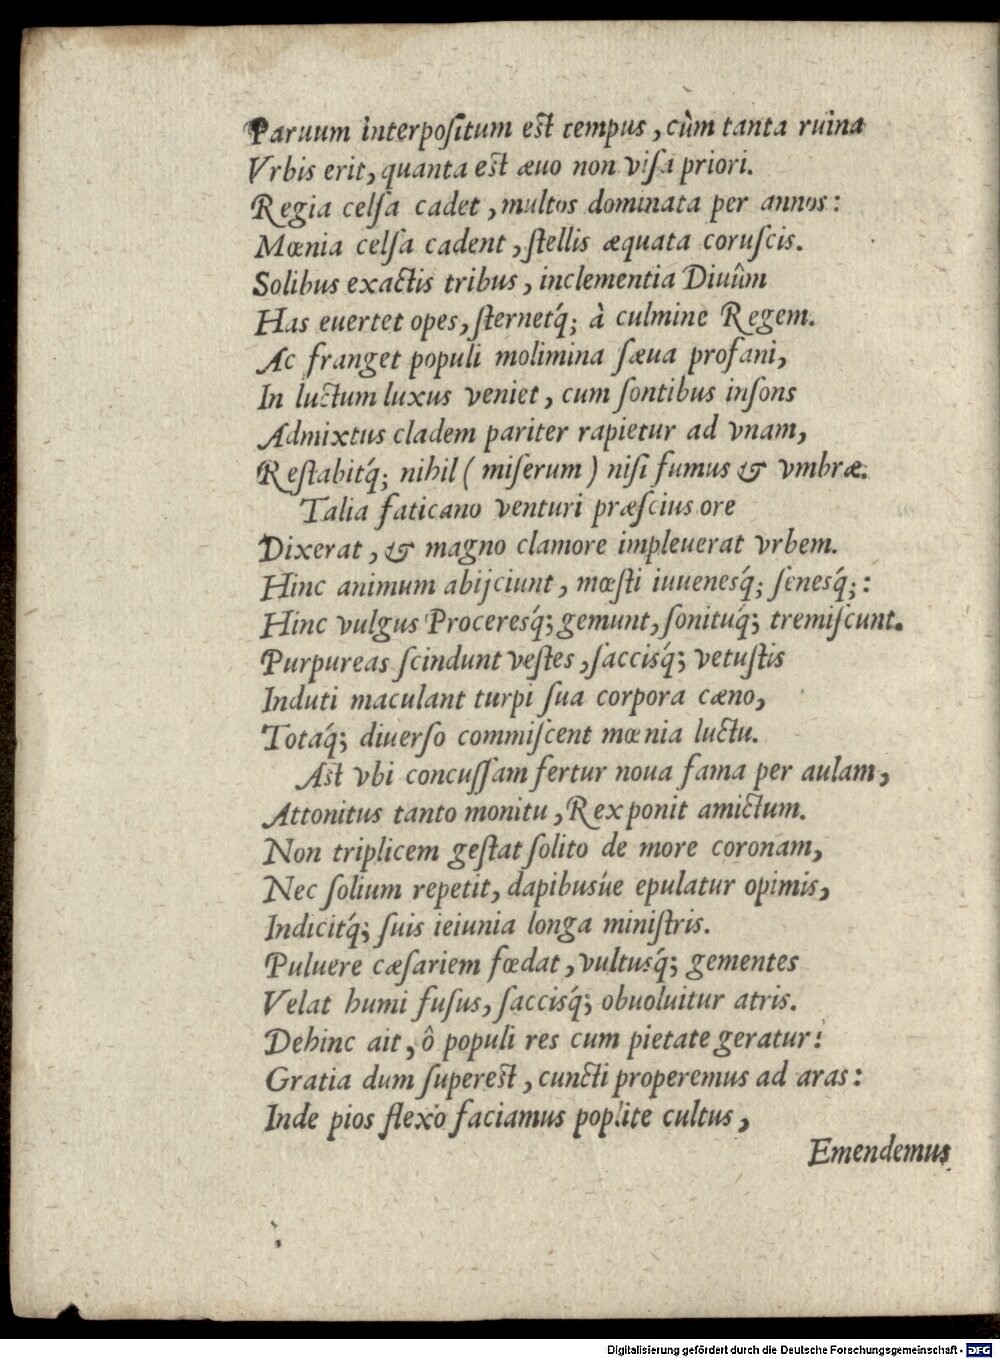 Paruum interpoſitum eſt tempus, cùm tanta ruina
Vrbis erit, quanta est æuo non viſa priori.
Regia celſa cadet, multos dominata per annos:
Mœnia celſa cadent, ſtellis æquata coruſcis.
Solibus exactis tribus, inclementia Diuûm
Has euertet opes, ſternetq́; à culmine Regem.
Ac franget populi molimina ſæua profani,
In luctum luxus veniet, cum ſontibus inſons
Admixtus cladem pariter rapietur ad vnam,
Reſtabitq́; nihil (miſerum) niſi fumus & vmbræ.
Talia faticano venturi præſcius ore
Dixerat, & magno clamore impleuerat vrbem.
Hinc animum abijciunt, mœſti iuuenesq́; ſenesq́;:
Hinc vulgus Proceresq́; gemunt, ſonituq́; tremiſcunt.
Purpureas ſcindunt veſtes, ſaccisq́; vetuſtis
Induti maculant turpi ſua corpora cæno,
Totaq́; diuerſo commiſcent mœnia luctu.
Aſt vbi concuſſam fertur noua fama per aulam,
Attonitus tanto monitu, Rex ponit amictum.
Non triplicem geſtat ſolito de more coronam,
Nec ſolium repetit, dapibusúe epulatur opimis,
Indicitq́; ſuis ieiunia longa miniſtris.
Puluere cæſariem fœdat, vultusq́; gementes
Velat humi fuſus, ſaccisq́; obuoluitur atris.
Dehinc ait, ô populi res cum pietate geratur:
Gratia dum ſupereſt, cuncti properemus ad aras:
Inde pios flexo faciamus poplite cultus,
Emendemus
Digitalisierung gefördert durch die Deutsche Forschungsgemeinschaft - DFG